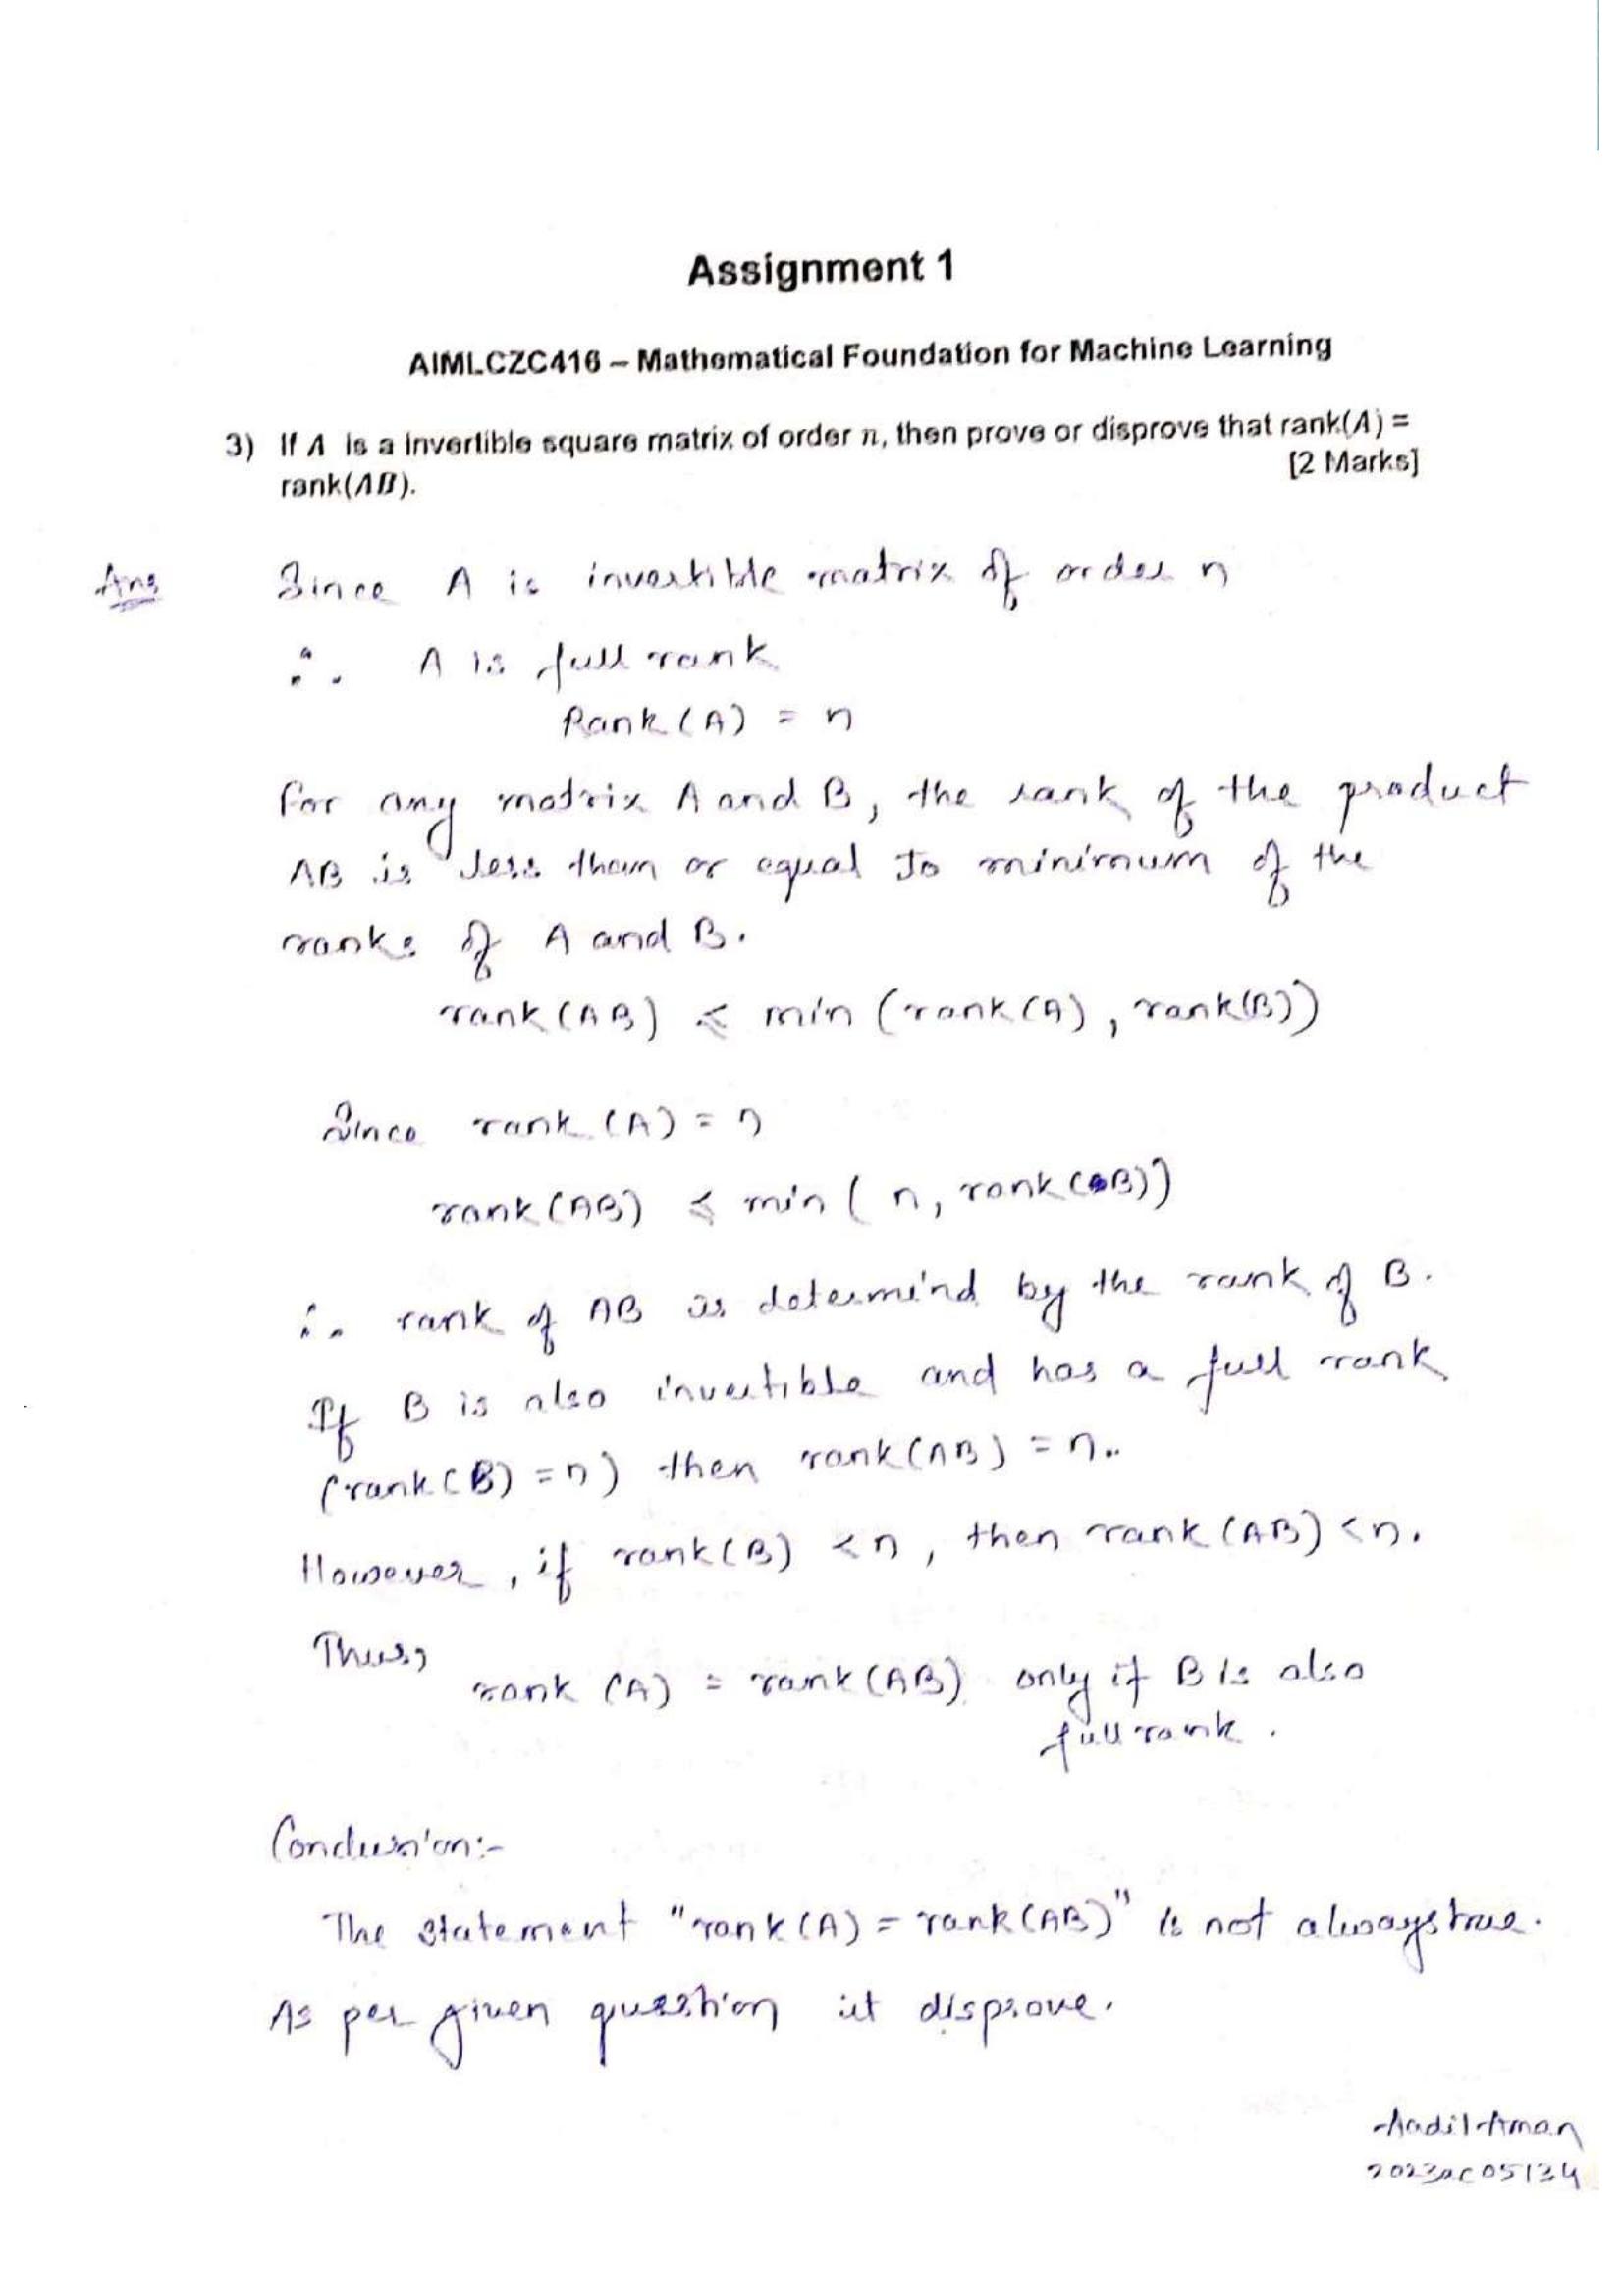 Assignment 1
AIMLCZC416 – Mathematical Foundation for Machine Learning
3) If A is a invertible square matrix of order n, then prove or disprove that rank(A) =
rank(AB). [2 Marks]
Ans Since A is invertible matrix of order n
∴ A is full rank
Rank (A) = n
For any matrix A and B, the rank of the product
AB is less than or equal to minimum of the
ranks of A and B.
rank (AB) ≤ min (rank (A), rank(B))
Since rank (A) = n
rank (AB) ≤ min ( n, rank (B))
∴ rank of AB is determind by the rank of B.
If B is also invertible and has a full rank
(rank (B) = n) then rank (AB) = n..
However, if rank (B) < n, then rank (AB) < n.
Thus,
rank (A) = rank (AB) only if B is also
full rank.
Conclusion:-
The statement "rank (A) = rank (AB)" is not always true.
As per given question it disprove.
Aadil Aman
2023ac05134